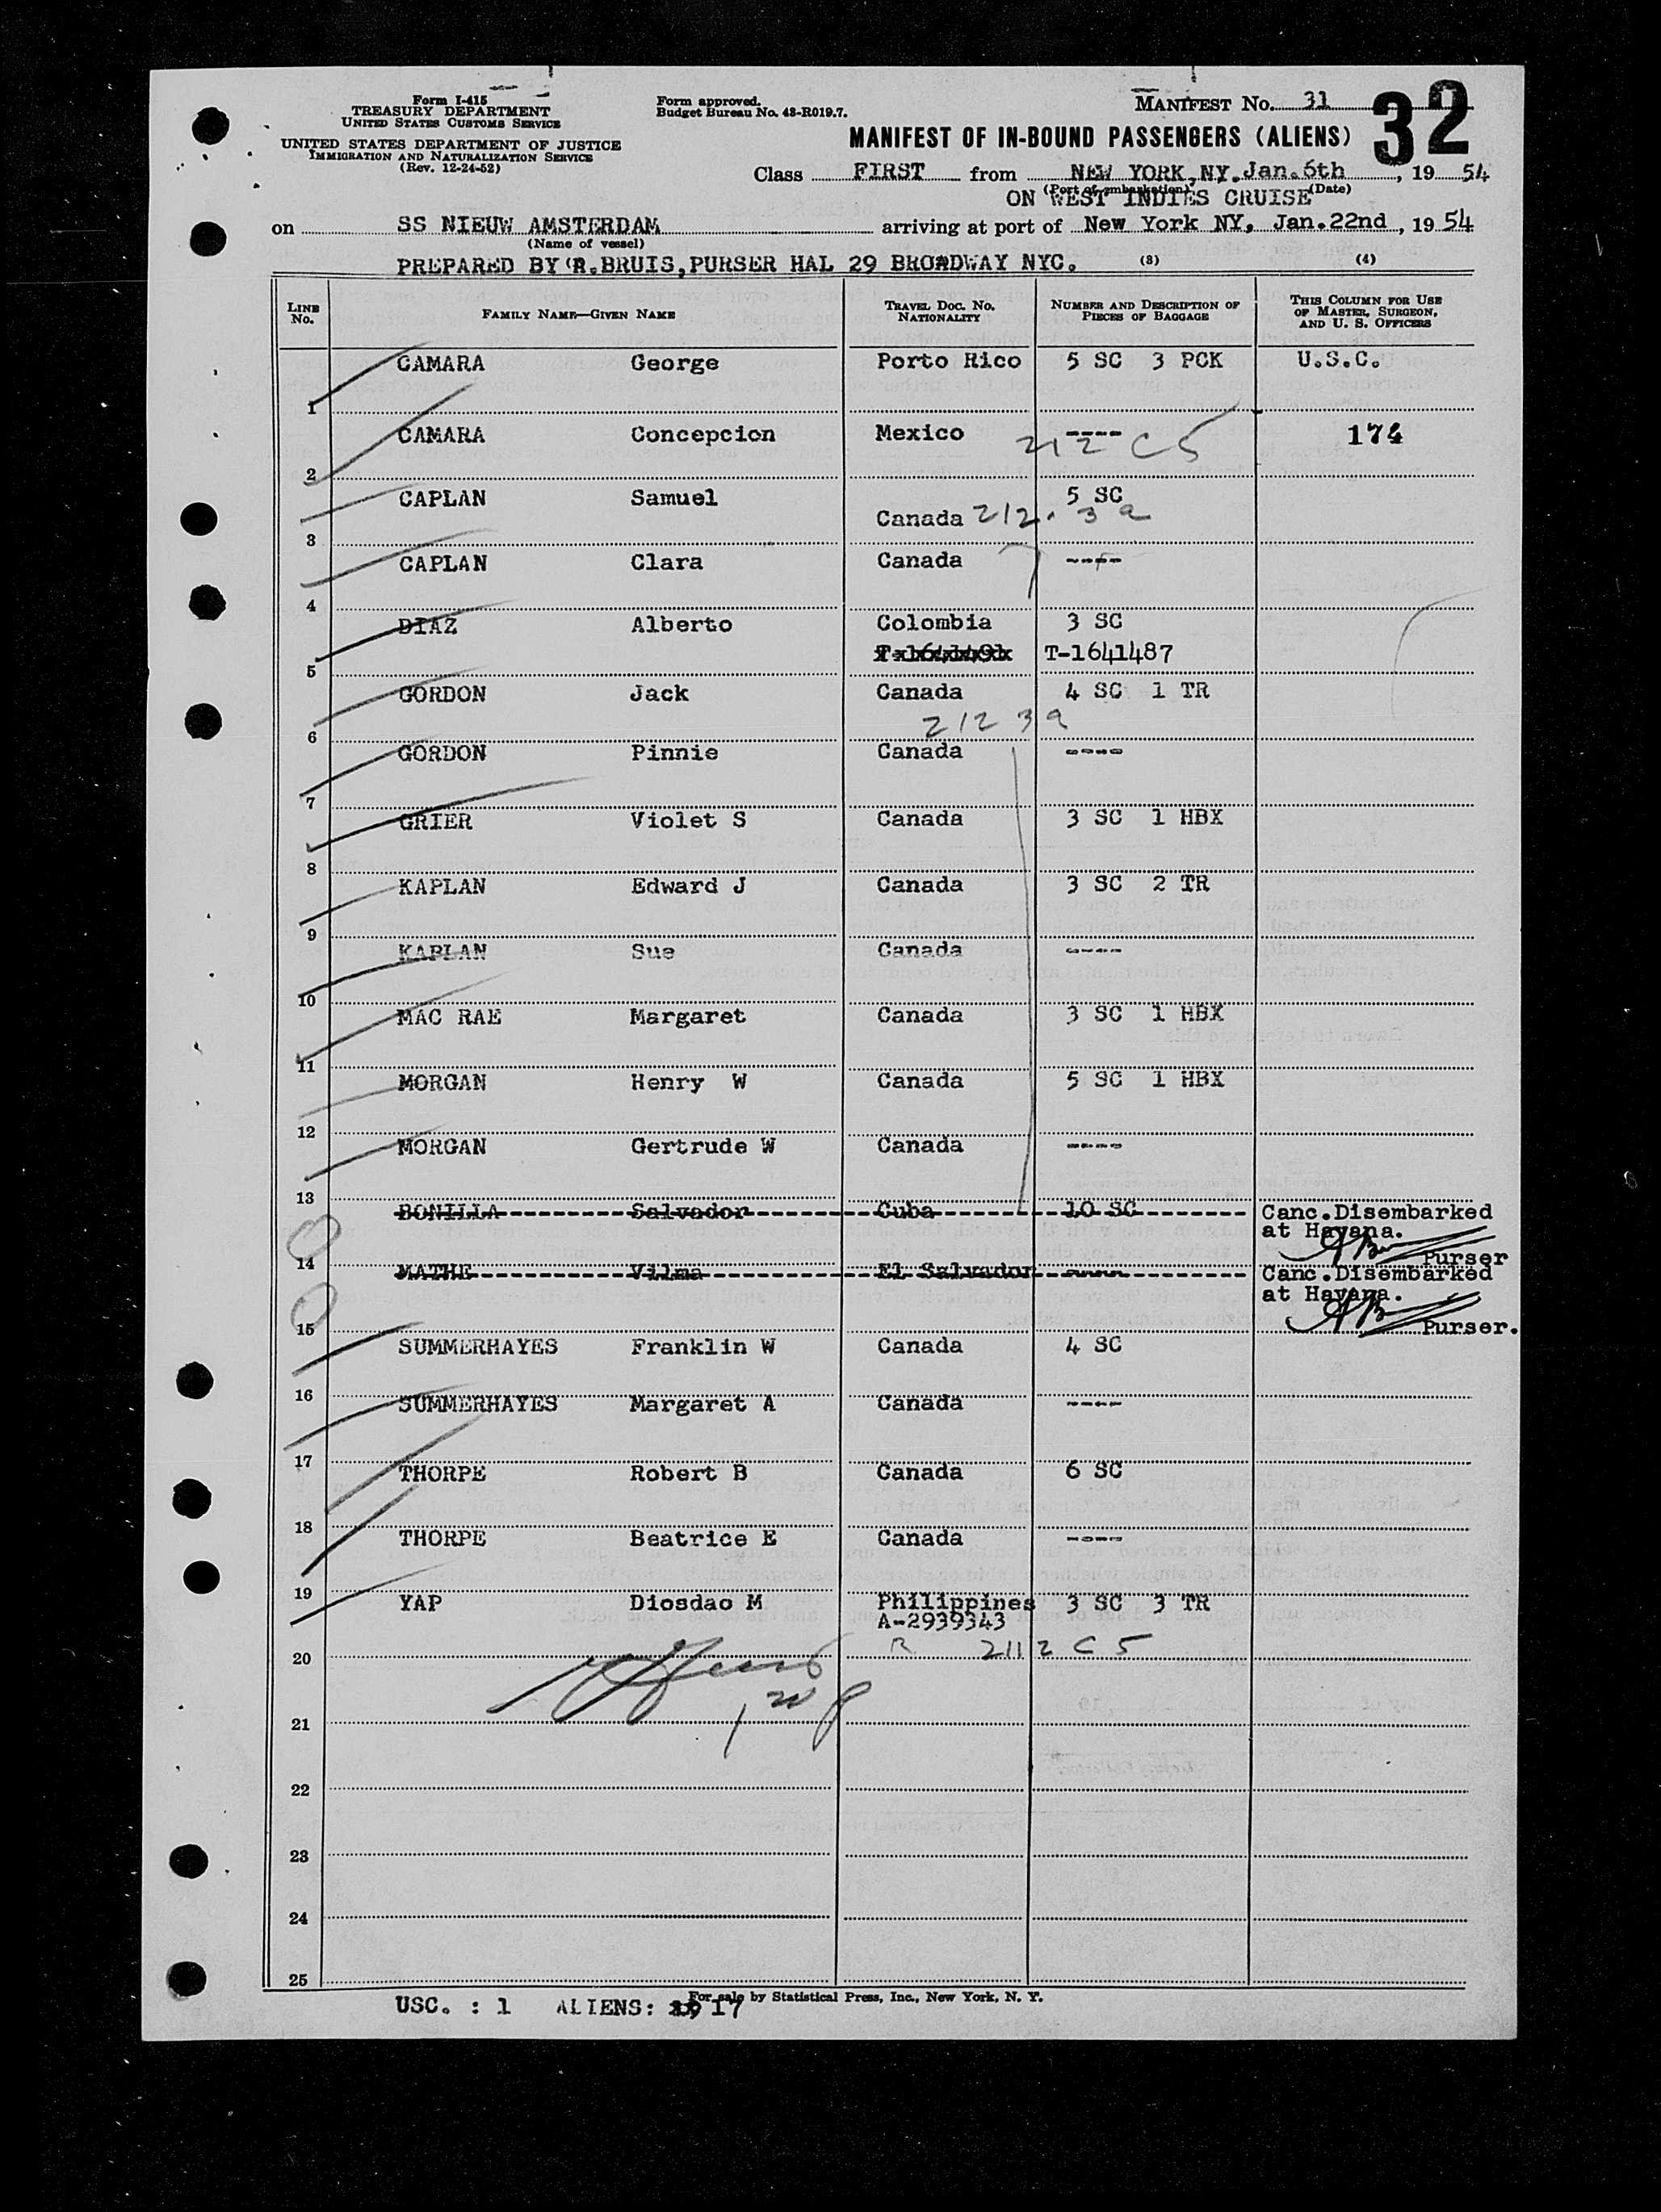 Form I-415
TREASURY DEPARTMENT
UNITED STATES CUSTOMS SERVICE
UNITED STATES DEPARTMENT OF JUSTICE
IMMIGRATION AND NATURALIZATION SERVICE
(Rev. 12-24-52)
Form approved.
Budget Bureau No. 43-R019.7.
MANIFEST No. 31
32
MANIFEST OF IN-BOUND PASSENGERS (ALIENS)
Class FIRST from NEW YORK, NY. Jan. 6th, 19 54
(Port of embarkation) (Date)
ON WEST INDIES CRUISE
on SS NIEUW AMSTERDAM arriving at port of New York NY, Jan. 22nd, 19 54
(Name of vessel)
PREPARED BY R. BRUIS, PURSER HAL 29 BROADWAY NYC. (3) (4)
LINE No. FAMILY NAME—GIVEN NAME TRAVEL DOC. NO. NATIONALITY NUMBER AND DESCRIPTION OF PIECES OF BAGGAGE THIS COLUMN FOR USE OF MASTER, SURGEON, AND U. S. OFFICERS
1 CAMARA George Porto Rico 5 SC 3 PCK U.S.C.
2 CAMARA Concepcion Mexico ---- 174
212 C 5
3 CAPLAN Samuel Canada 5 SC
212. 3 a
4 CAPLAN Clara Canada ----
5 DIAZ Alberto Colombia 3 SC
T-1641487
6 GORDON Jack Canada 4 SC 1 TR
212 3 a
7 GORDON Pinnie Canada ----
8 GRIER Violet S Canada 3 SC 1 HBX
9 KAPLAN Edward J Canada 3 SC 2 TR
10 KAPLAN Sue Canada ----
11 MAC RAE Margaret Canada 3 SC 1 HBX
12 MORGAN Henry W Canada 5 SC 1 HBX
13 MORGAN Gertrude W Canada ----
14 BONILLA Salvador Cuba 10 SC Canc. Disembarked
at Havana.
Purser
15 MATHE Vilma El Salvador ---- Canc. Disembarked
at Havana.
Purser.
16 SUMMERHAYES Franklin W Canada 4 SC
17 SUMMERHAYES Margaret A Canada ----
18 THORPE Robert B Canada 6 SC
19 THORPE Beatrice E Canada ----
20 YAP Diosdao M Philippines 3 SC 3 TR
A-2939343
R 2112 C 5
21
22
23
24
25
For sale by Statistical Press, Inc., New York, N. Y.
USC. : 1 ALIENS: 17